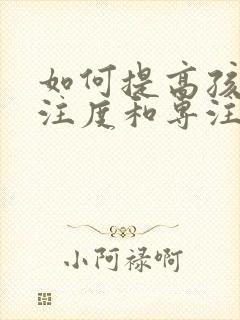 如何提高孩
注度和专注
小阿禄啊